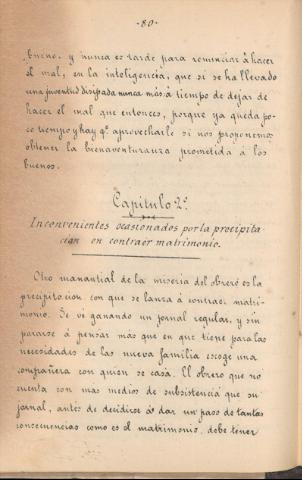 -80-
bueno, y nunca es tarde para renunciar á hacer
el mal, en la inteligencia, que si se ha llevado
una juventud disipada nunca mas á tiempo de dejar de
hacer el mal que entonces, porque ya queda po-
co tiempo y hay qe aprovecharle si nos proponemos
obtener la bienaventuranza prometida á los
buenos.
Capitulo 2º.
Inconvenientes ocasionados por la precipita-
cion en contraer matrimonio.
Otro manantial de la miseria del obrero es la
precipitacion con que se lanza á contraer matri-
monio. Se vé ganando un jornal regular, y sin
pararse á pensar más que en que tiene para las
necesidades de las nueva familia escoge una
compañera con quien se casa. El obrero que no
cuenta con mas medios de subsistencia que su
jornal, antes de decidirse á dar un paso de tantas
consecuencias como es el matrimonio, debe tener